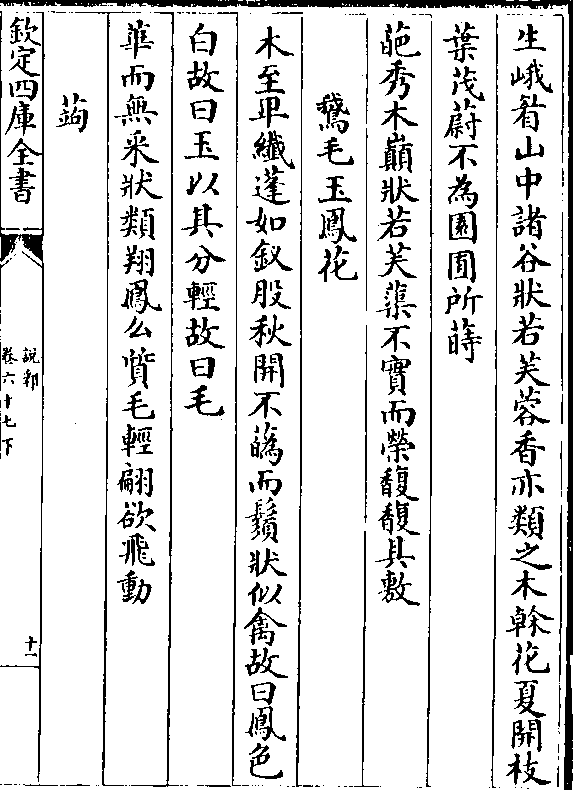 生峨眉山中諸谷狀若芙蓉香亦類之木榦花夏開枝
葉茂蔚不為園囿所蒔
葩秀木巔狀若芙蕖不實而榮馥馥其敷
鵞毛玉鳳花
木至卑纖蓬如釵股秋開不蘤而鬚狀似禽故曰鳳色
白故曰玉以其分輕故曰毛
華而無采狀類翔鳳么質毛輕翩欲飛動
蒟
欽定四庫全書
說郛
卷六十七下
十一